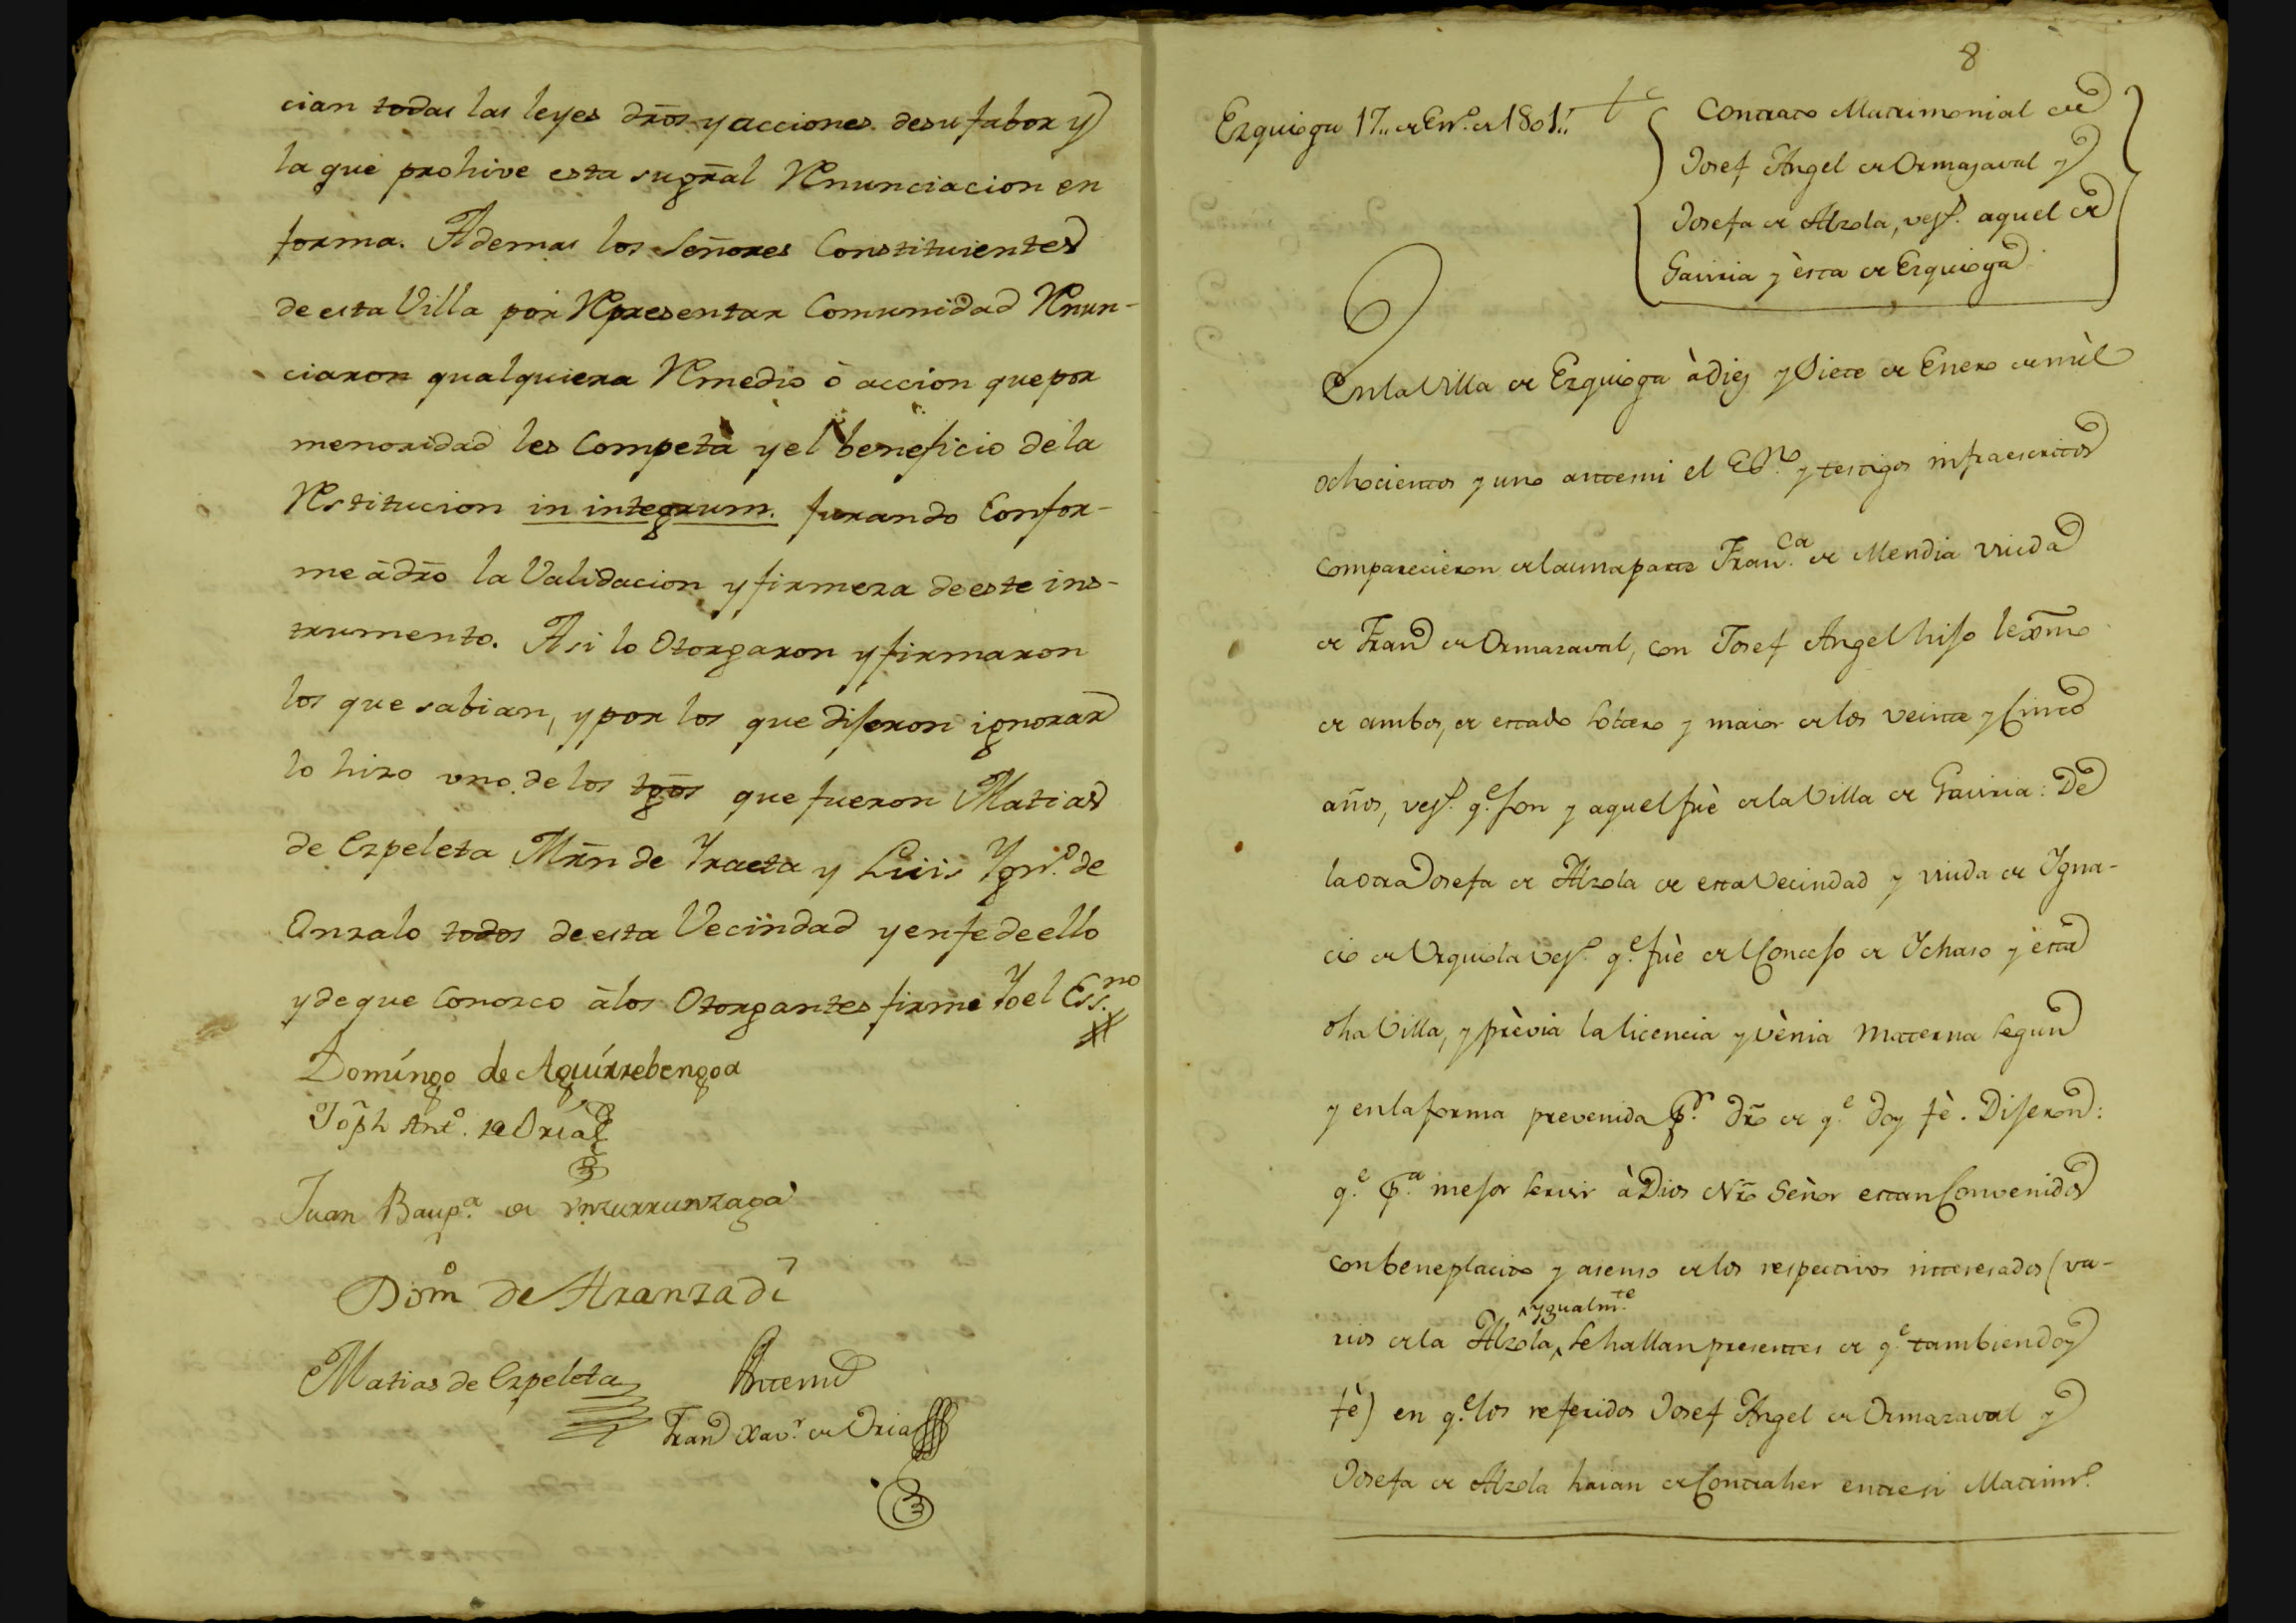 cian todas las leyes dros y acciones de su fabor y
la que prohive esta su gral Renunciacion en
forma. Ademas los Señores Constituientes
de esta Villa por Representar Comunidad Renun-
ciaron qualquiera Remedio ò accion que por
menoridad les Competa y el beneficio de la
Restitucion in integrum. jurando Confor-
me à dro la Validacion y firmeza de este ins-
trumento. Asi lo Otorgaron y firmaron
los que sabian, y por los que dijeron ignorar
lo hizo uno de los tgos que fueron Matias
de Ezpeleta Mrn de Yraeta y Luis Ygn.º de
Anzalo todos de esta Vecindad y en fe de ello
y de que Conozco à los Otorgantes firme Yo el Ess.no
Domingo de Aguirrebengoa
Joph Ant.º de Oria
Juan Baup.a de Ynzurrunzaga
Dom.º de Aranzadi
Matias de Ezpeleta
Antemi
Fran.co Xav.r de Oria
8
Ezquioga 17,, de En.º de 1801,,
Contrato Matrimonial de
Josef Angel de Ormazaval y
Josefa de Alzola, vez.s aquel de
Gaviria y èsta de Ezquioga
En la Villa de Ezquioga à diez y Siete de Enero de mil
ochocientos y uno ante mi el Es.no y testigos infraescritos
comparecieron de la una parte Fran.ca de Mendia viuda
de Fran.co de Ormazaval, con Josef Angel hijo lexmo
de ambos, de estado soltero y maior de los veinte y Cinco
años, vez.s q.e son y aquel fuè de la Villa de Gaviria: De
la otra Josefa de Alzola de esta Vecindad y viuda de Ygna-
cio de Urquiola vez.º q.e fuè del Concejo de Ychaso y èsta
dha Villa, y prèvia la licencia y vènia materna segun
y en la forma prevenida p.r dro de q.e doy fè. Dijeron:
q.e p.a mejor servir à Dios Nro Señor estan Convenidos
con beneplacito y asenso de los respectivos interesados (va-
rios de la Alzola, ygualm.te se hallan presentes de q.e tambien doy
fè) en q.e los referidos Josef Angel de Ormazaval y
Josefa de Alzola haian de Contraher entre si Matrim.º